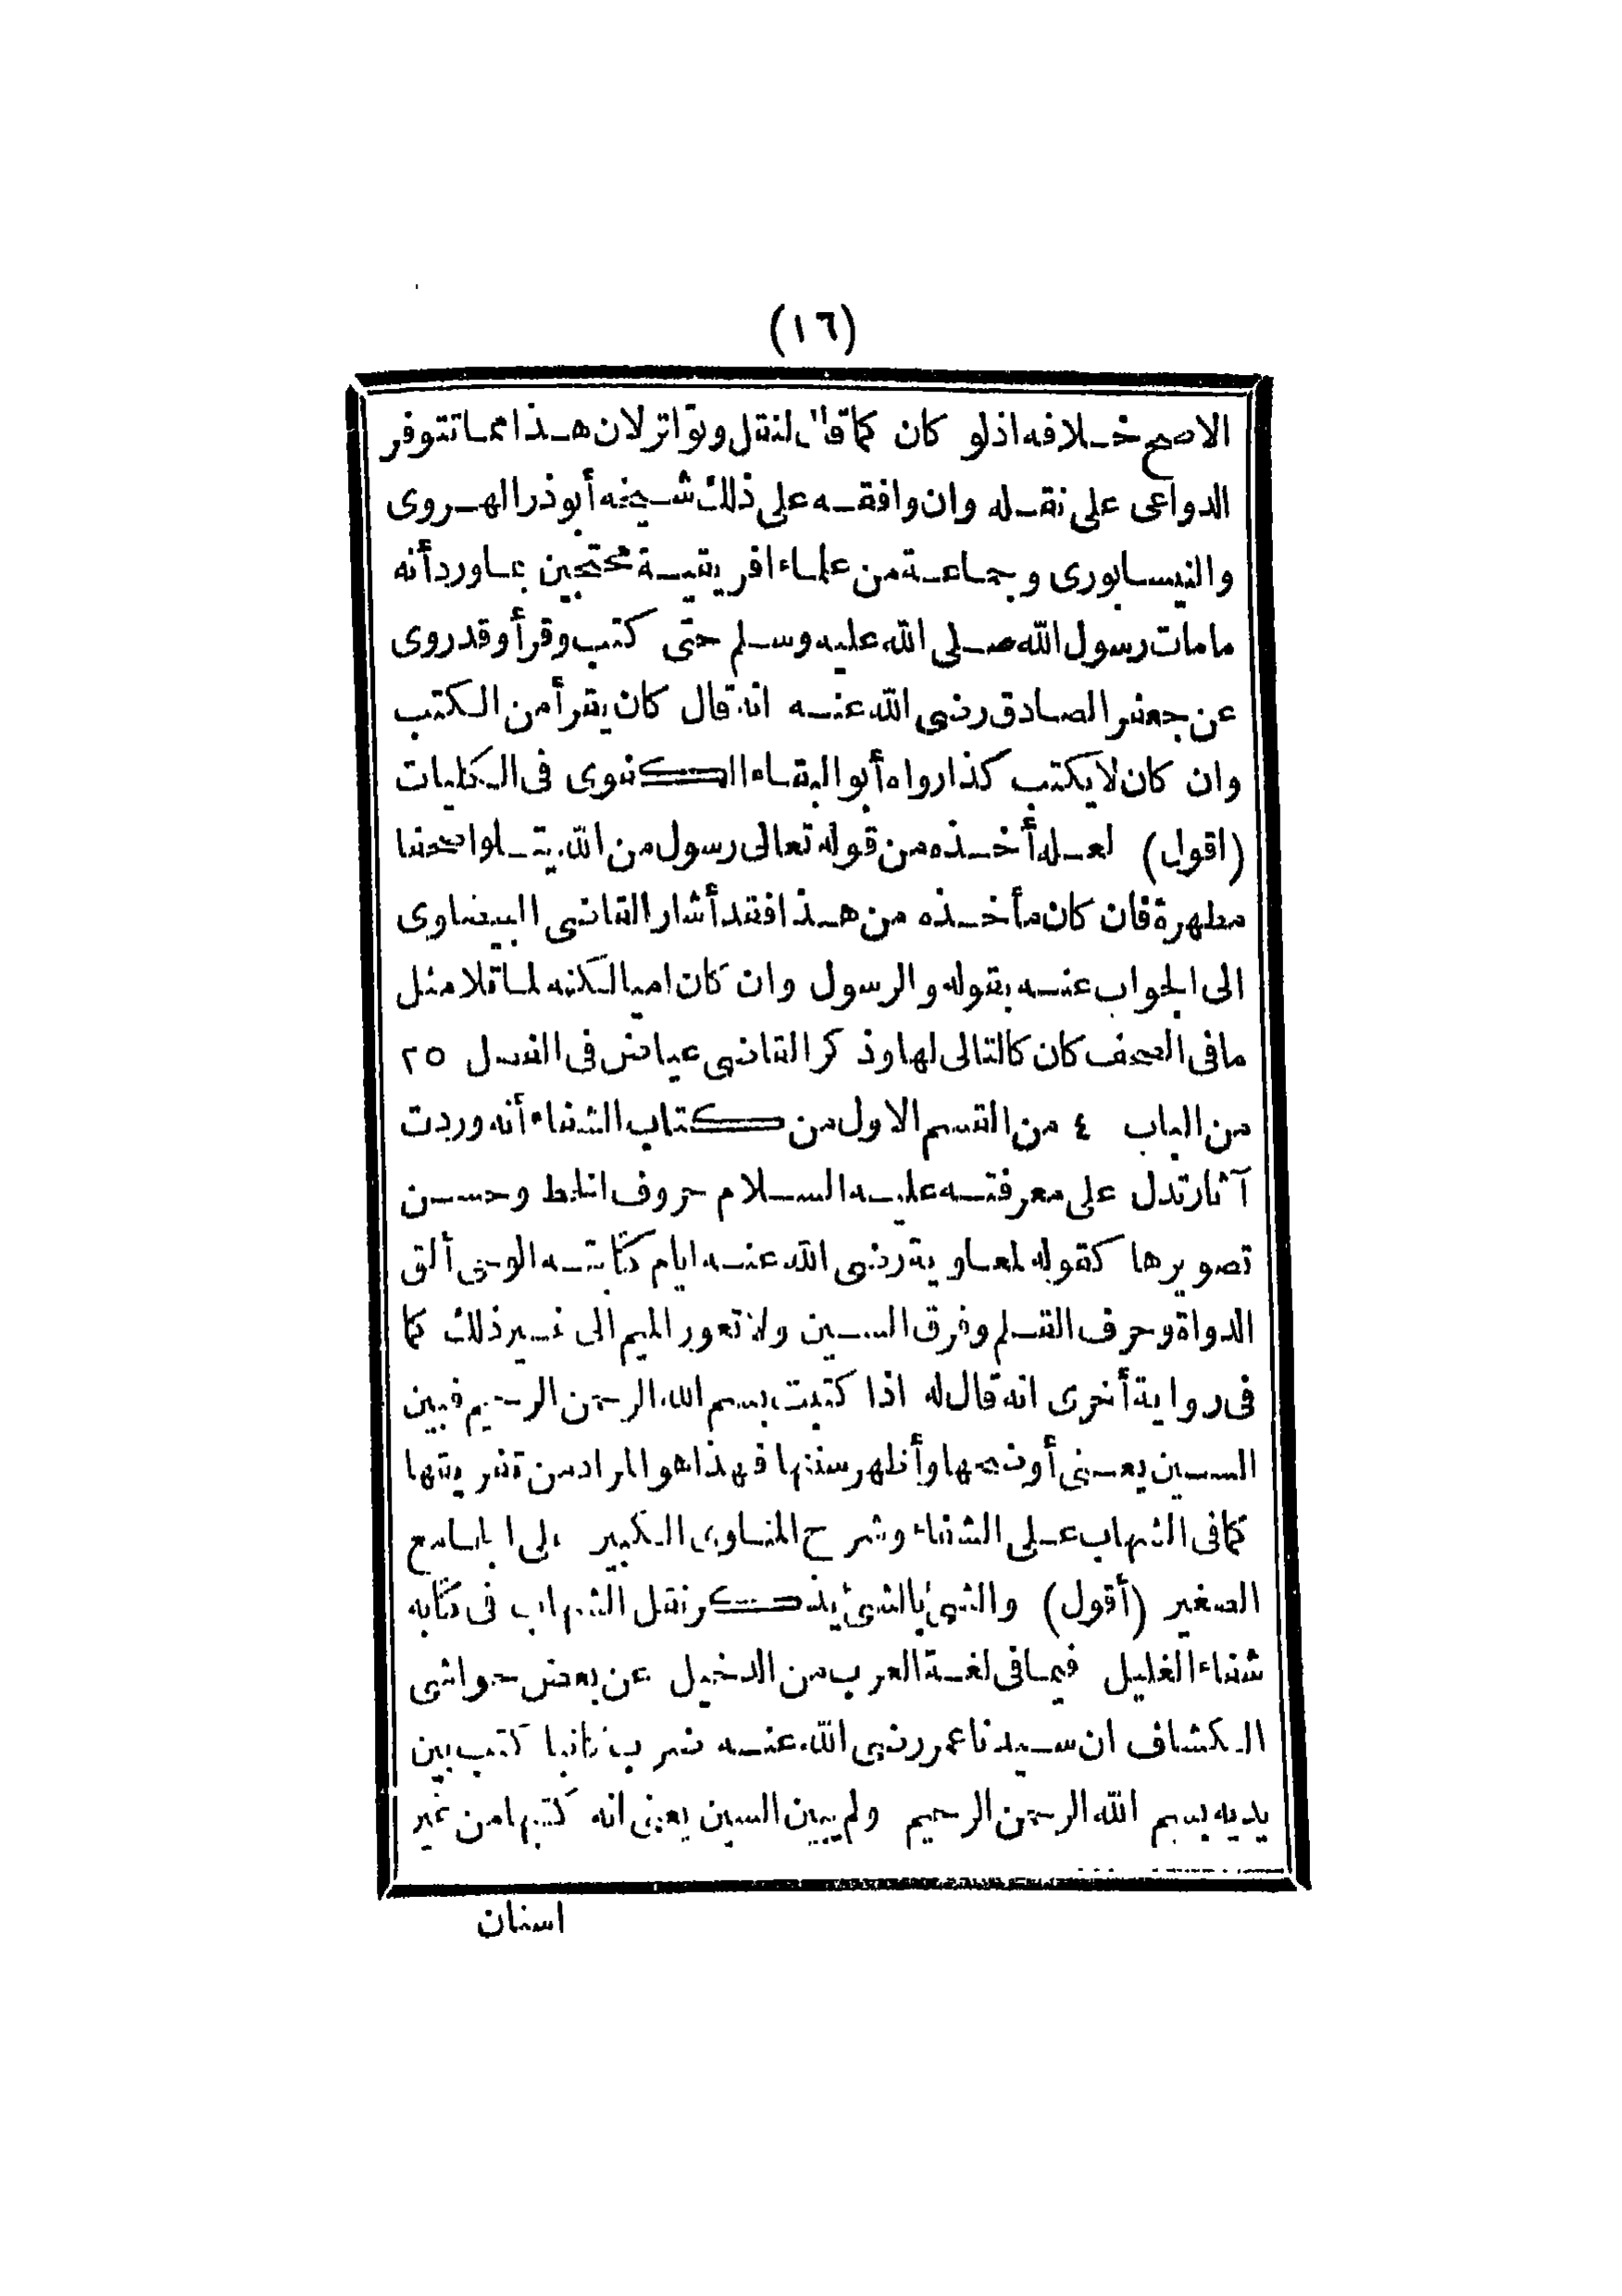 (١٦)
الاصح خلافه اذلو كان كما قال لنقل وتواتر لان هذا مما تتوفر
الدواعى على نقله وان وافقه على ذلك شيخه أبو ذر الهروى
والنيسابورى وجماعة من علماء افريقية محتجين بما ورد أنه
ما مات رسول الله صلى الله عليه وسلم حتى كتب وقرأ وقد روى
عن جعفر الصادق رضى الله عنه انه قال كان يقرأ من الكتب
وان كان لا يكتب كذا رواه أبو البقاء الكفوى فى الكليات
(اقول) لعله أخذه من قوله تعالى رسول من الله يتلوا صحفا
مطهرة فان كان مأخذه من هذا فقد أشار القاضى البيضاوى
الى الجواب عنه بقوله والرسول وان كان اميا لكنه لما تلا مثل
ما فى الصحف كان كالتالى لها وذكر القاضى عياض فى الفصل ٢٥
من الباب ٤ من القسم الاول من كتاب الشفاء أنه وردت
آثار تدل على معرفته عليه السلام حروف الخط وحسن
تصويرها كقوله لمعاوية رضى الله عنه ايام كتابته الوحى ألق
الدواة وحرف القلم وفرق السين ولا تعور الميم الى غير ذلك كما
فى رواية أخرى انه قال له اذا كتبت بسم الله الرحمن الرحيم فبين
السين يعنى أوضحها وأظهر سنتها فهذا هو المراد من تفريقها
كما فى الشهاب على الشفاء وشرح المناوى الكبير على الجامع
الصغير (أقول) والشئ بالشئ يذكر نقل الشهاب فى كتابه
شفاء الغليل فيما فى لغة العرب من الدخيل عن بعض حواشى
الكشاف ان سيدنا عمر رضى الله عنه ضرب كاتبا كتب بين
يديه بسم الله الرحمن الرحيم ولم يبين السين يعنى انه كتبها من غير
اسنان